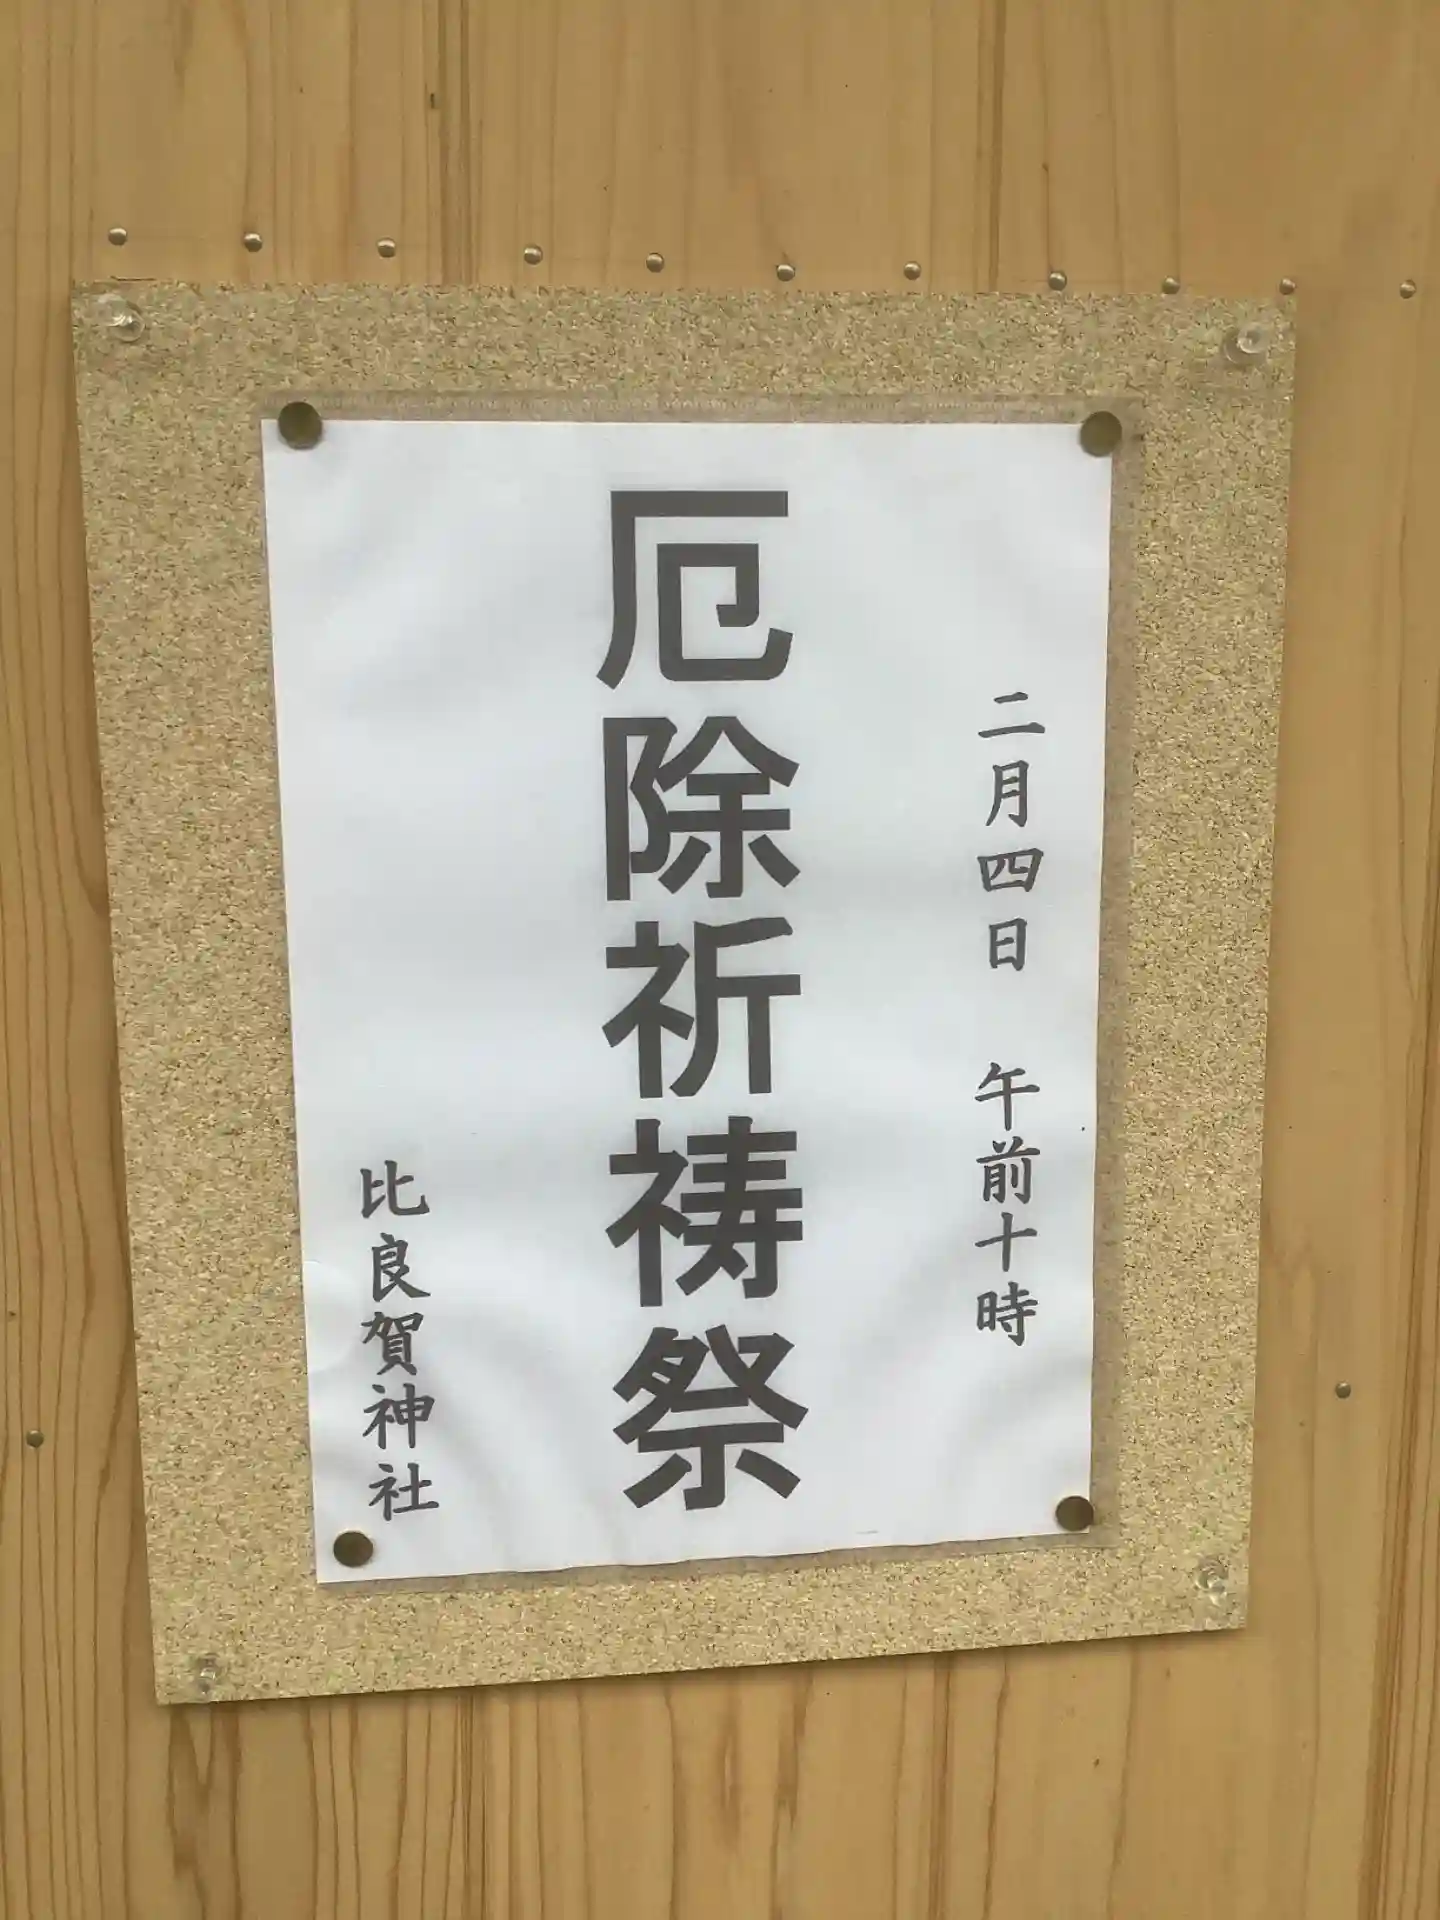 二月四日　午前十時
厄除祈祷祭
比良賀神社